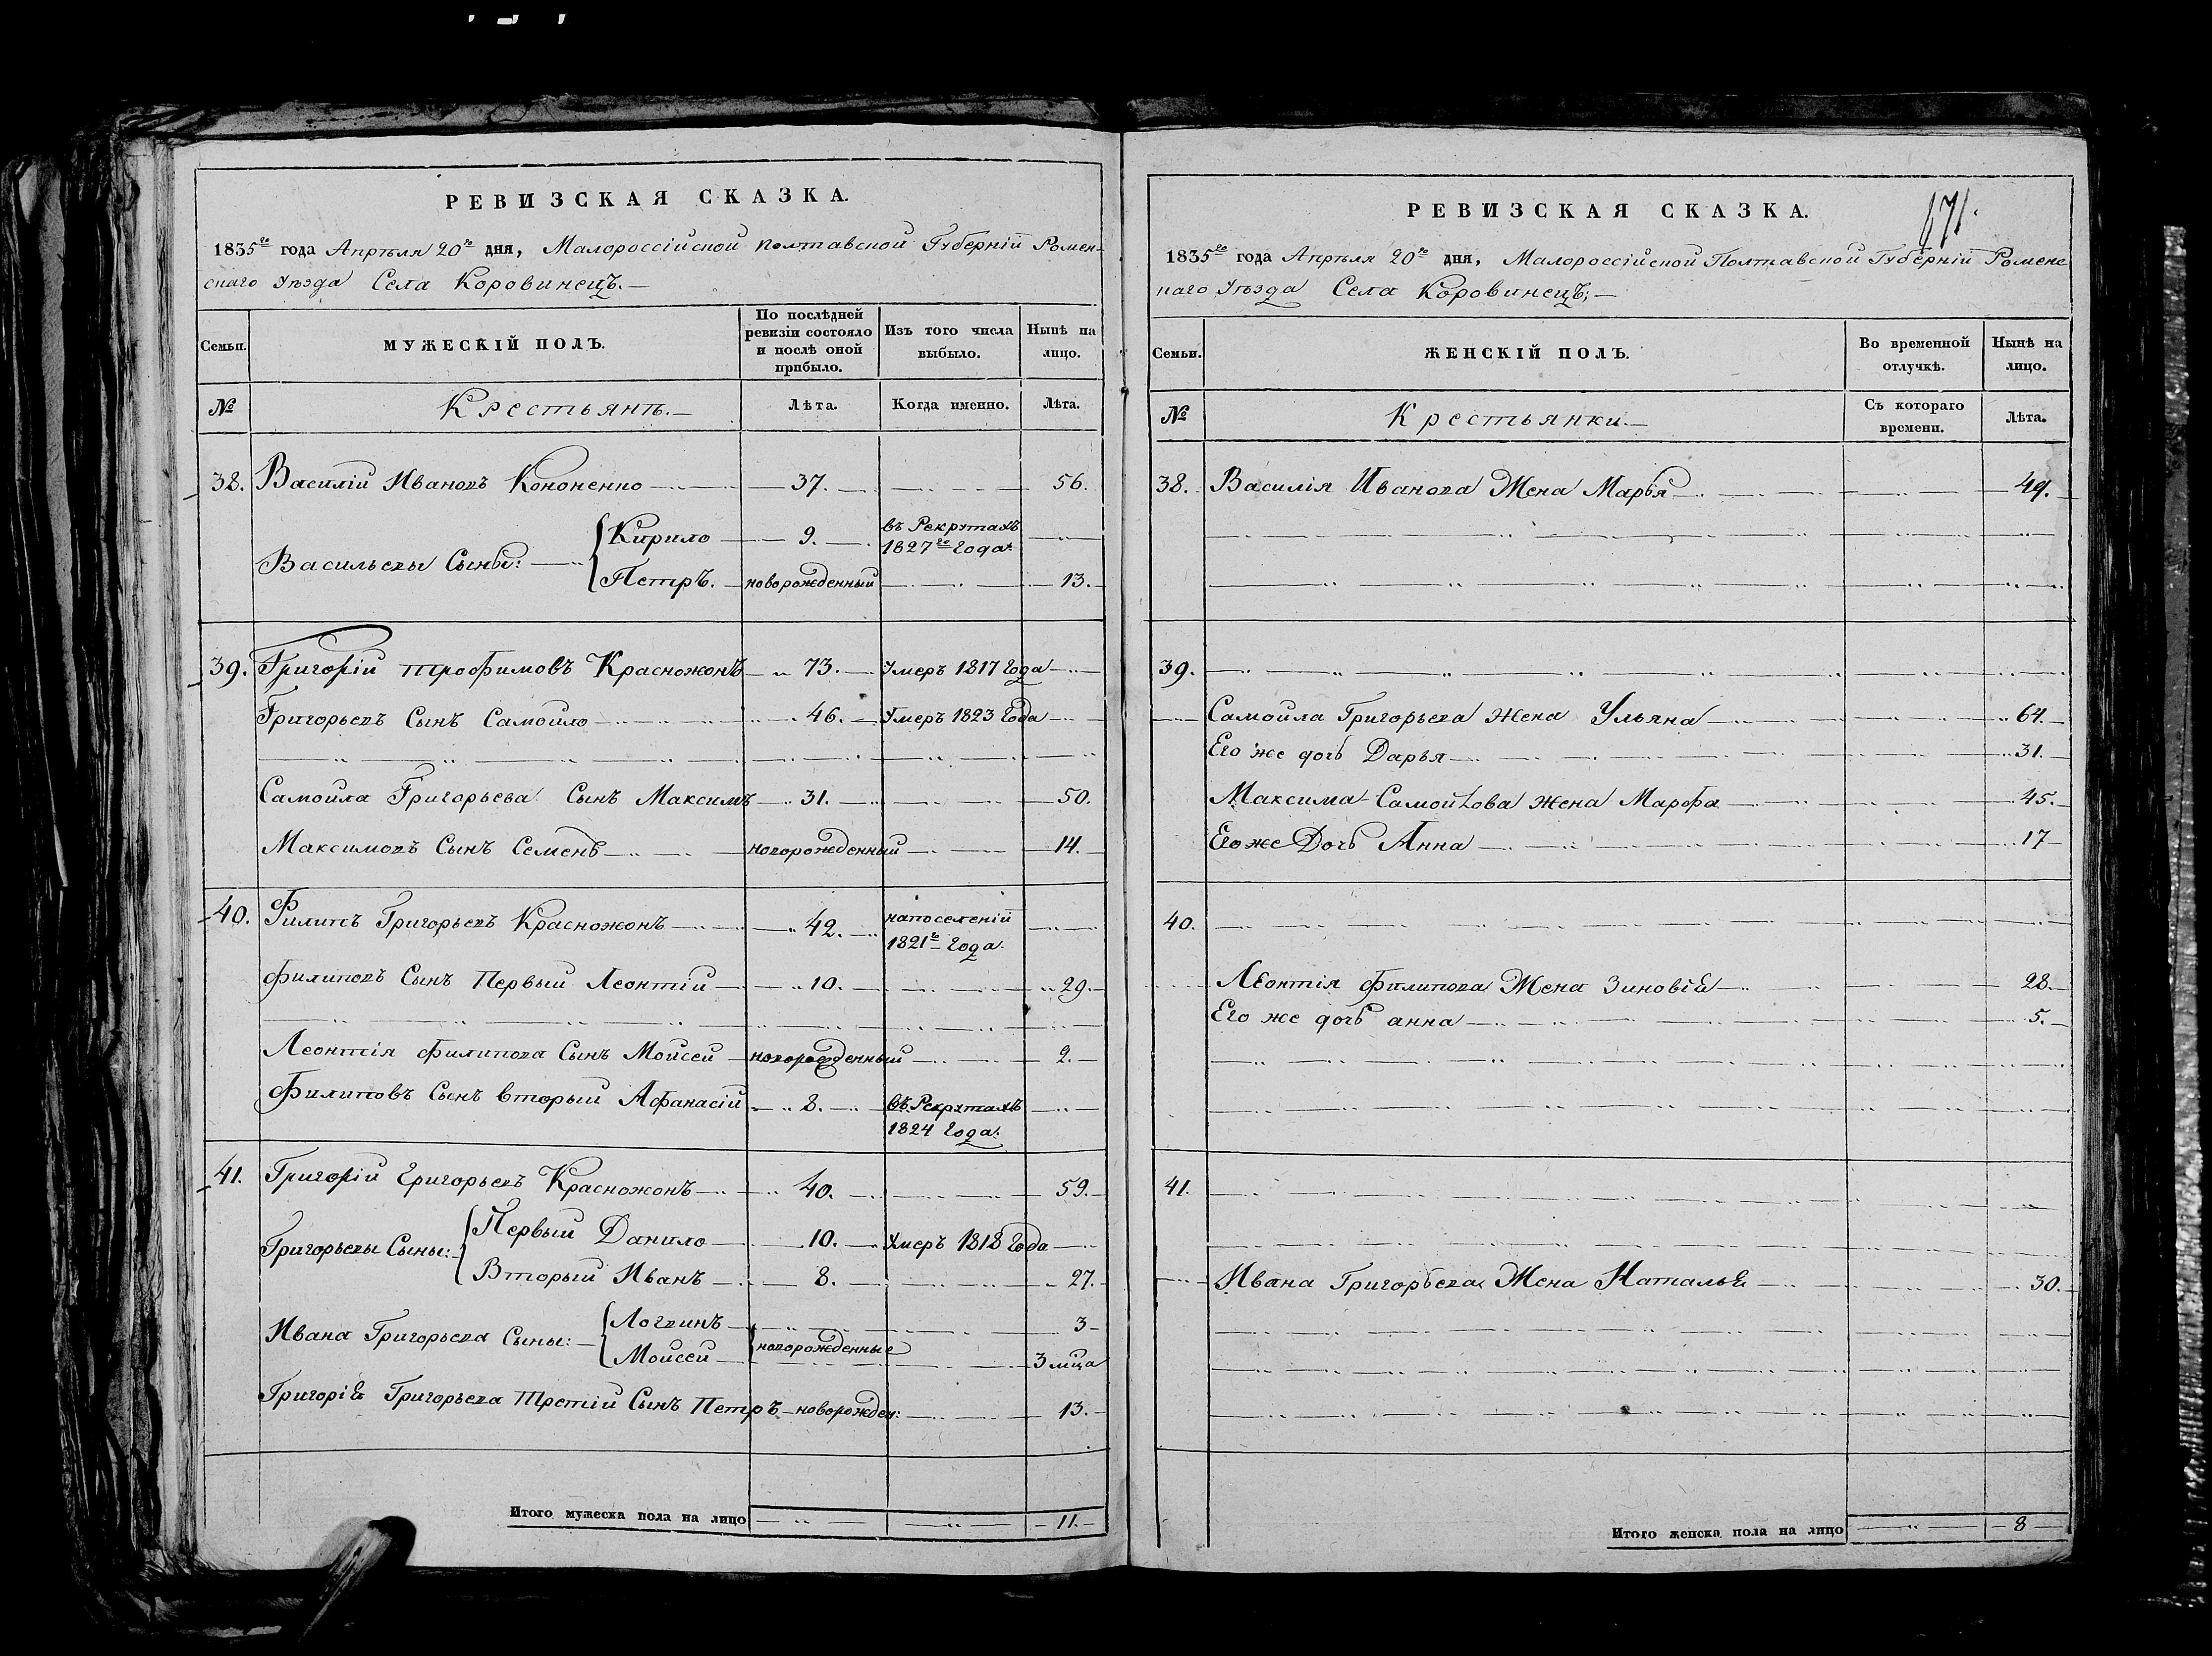 РЕВИЗСКАЯ СКАЗКА.
1835го года Апрѣля 20го дня, Малороссійской Полтавской Губерніи Ромен-
скаго Уѣзда Села Коровинецъ.
Семьи. МУЖЕСКІЙ ПОЛЪ. По послѣдней ревизіи состояло и послѣ оной прибыло. Изъ того числа выбыло. Нынѣ на лицо.
№ Крестьянъ. Лѣта. Когда именно. Лѣта.
38. Василій Ивановъ Кононенко 37. 56.
Васильевы Сыны: Кирило 9. въ Рекрутахъ 1827го года.
Петръ. новорожденный 13.
39. Григорій Трофимовъ Красножонъ 73. Умеръ 1817 года
Григорьевъ Сынъ Самойло 46. Умеръ 1823 года
Самойла Григорьева Сынъ Максимъ 31. 50.
Максимовъ Сынъ Семенъ новорожденный 14.
40. Филипъ Григорьевъ Красножонъ 42. на поселеніи 1821го года.
Филиповъ Сынъ Первый Леонтій 10. 29.
Леонтія Филипова Сынъ Мойсей новорожденный 2.
Филиповъ Сынъ Вторый Афанасій 8. въ Рекрутахъ 1824 года.
41. Григорій Григорьевъ Красножонъ 40. 59.
Григорьевы Сыны: Первый Данило 10. Умеръ 1818 года
Вторый Иванъ 8. 27.
Ивана Григорьева Сыны: Логвинъ 3
Мойсей новорожденные 3 мца
Григорія Григорьева Третій Сынъ Петръ новорожден: 13.
Итого мужеска пола на лицо 11.
171.
РЕВИЗСКАЯ СКАЗКА.
1835го года Апрѣля 20го дня, Малороссійской Полтавской Губерніи Роменс
каго Уѣзда Села Коровинецъ;
Семьи. ЖЕНСКІЙ ПОЛЪ. Во временной отлучкѣ. Нынѣ на лицо.
№ Крестьянки. Съ котораго времени. Лѣта.
38. Василія Иванова Жена Марья 49.
39.
Самойла Григорьева Жена Ульяна 64.
Его же дочь Дарья 31.
Максима Самойлова Жена Марфа 45.
Его же Дочь Анна 17
40.
Леонтія Филипова Жена Зиновія 28.
Его же дочь анна 5.
41.
Ивана Григорьева Жена Наталья 30.
Итого женска пола на лицо 8